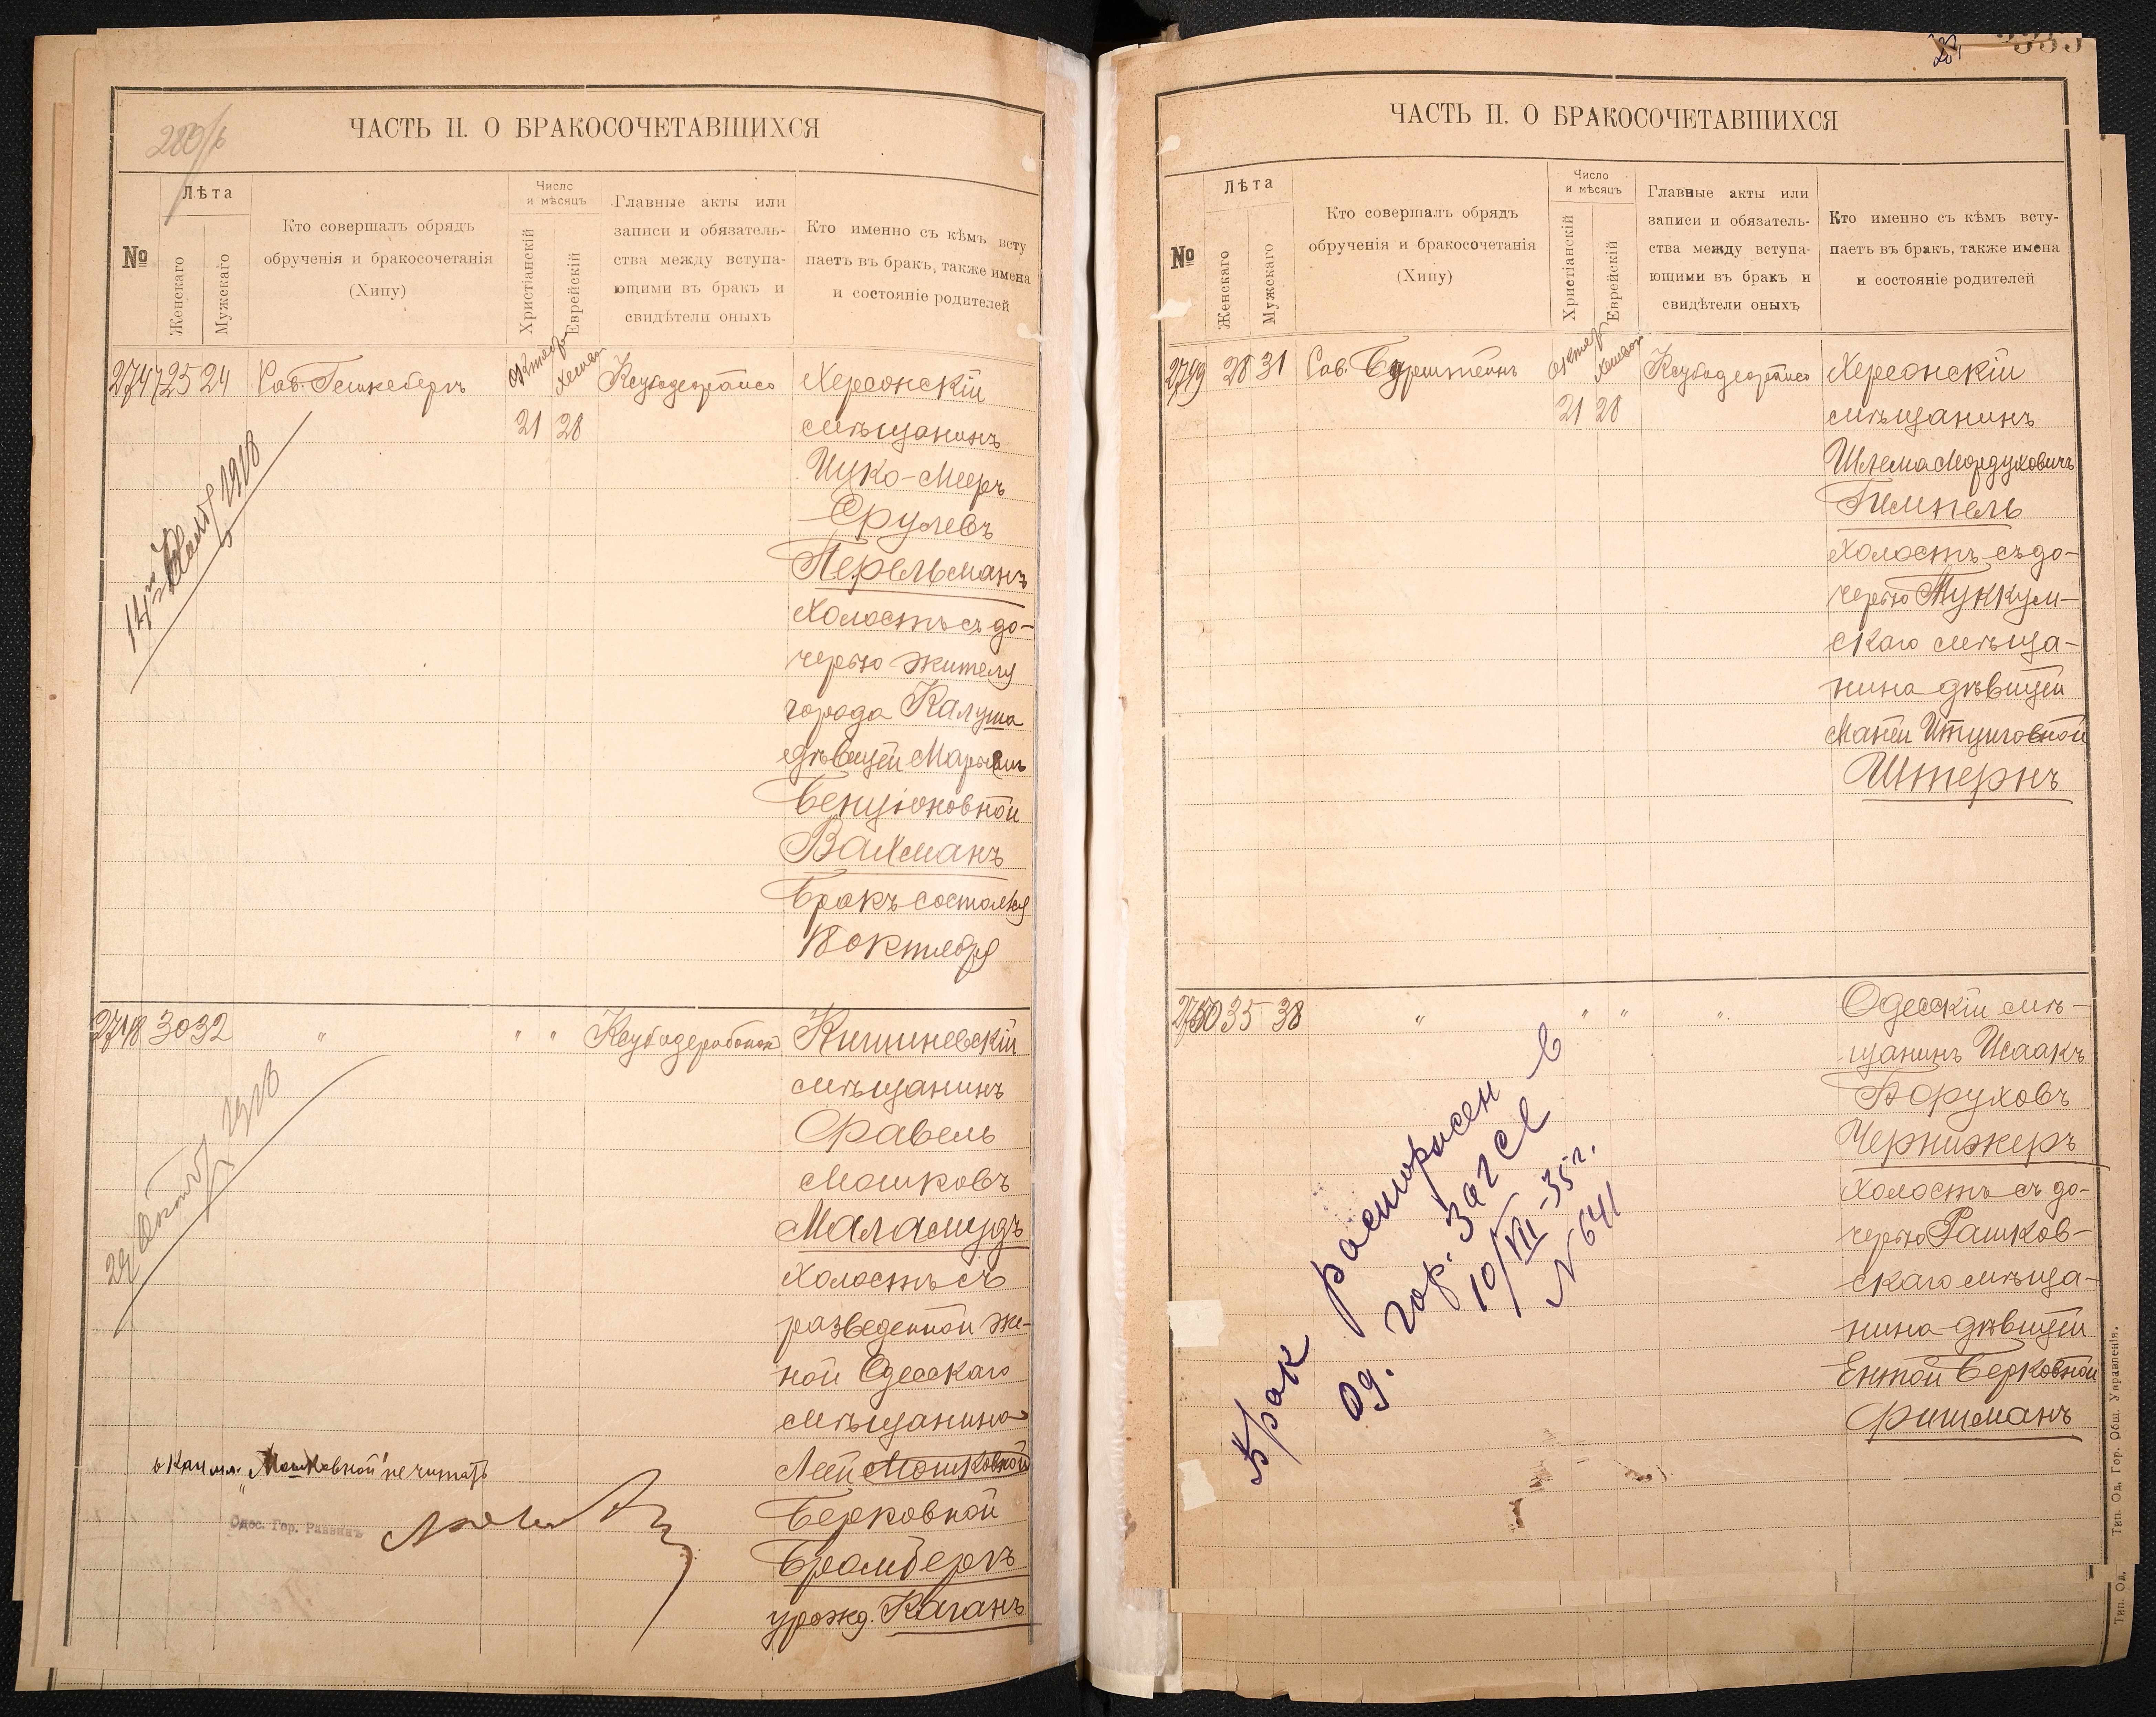 280/б
ЧАСТЬ II. О БРАКОСОЧЕТАВШИХСЯ
№
Лѣта
Женскаго
Мужскаго
Кто совершалъ обрядъ
обрученія и бракосочетанія
(Хипу)
Число
и мѣсяцъ
Христіанскій
Еврейскій
Главные акты или
записи и обязатель-
ства между вступа-
ющими въ бракъ и
свидѣтели оныхъ
Кто именно съ кѣмъ всту
паетъ въ бракъ, также имена
и состояніе родителей
2747 25 24
Октябр
21 28
Херсонскій
мѣщанинъ
Ицко-Мееръ
Срулевъ
Перельманъ
Холостъ съ до-
черью жителя
города Калуша
дѣвицей
Бенціоновной
Вайманъ
Бракъ состоялся
18 октября
1918
2748 30 32
" " "
Кишиневскій
мѣщанинъ
Фавель
Мошковъ
Маламудъ
Холостъ съ
разведенной же-
ной Одесскаго
мѣщанина
Леей Мошковной
Берковной
Бромбергъ
урожд. Каганъ
1918
"Мошковной" не читать
Одес. Гор. Раввинъ
ЧАСТЬ II. О БРАКОСОЧЕТАВШИХСЯ
№
Лѣта
Женскаго
Мужскаго
Кто совершалъ обрядъ
обрученія и бракосочетанія
(Хипу)
Число
и мѣсяцъ
Христіанскій
Еврейскій
Главные акты или
записи и обязатель-
ства между вступа-
ющими въ бракъ и
свидѣтели оныхъ
Кто именно съ кѣмъ всту-
паетъ въ бракъ, также имена
и состояніе родителей
2749 28 31
Октябр
21 28
Херсонскій
мѣщанинъ
Шлема Мордуховичъ
Гимпель
Холостъ съ до-
черью
скаго мѣща-
нина дѣвицей
Штернъ
2750 35 38
" " " "
Одесскій мѣ-
щанинъ Исаакъ
Боруховъ
Чернижеръ
Холостъ съ до-
черью Рашков-
скаго мѣща-
нина дѣвицей
Ентой Берковной
Фишманъ
Брак расторжен в
Од. гор. ЗАГСе
10/VII-35 г.
N 641
Тип. Од. Гор. Общ. Управленія.
Тип. Од.